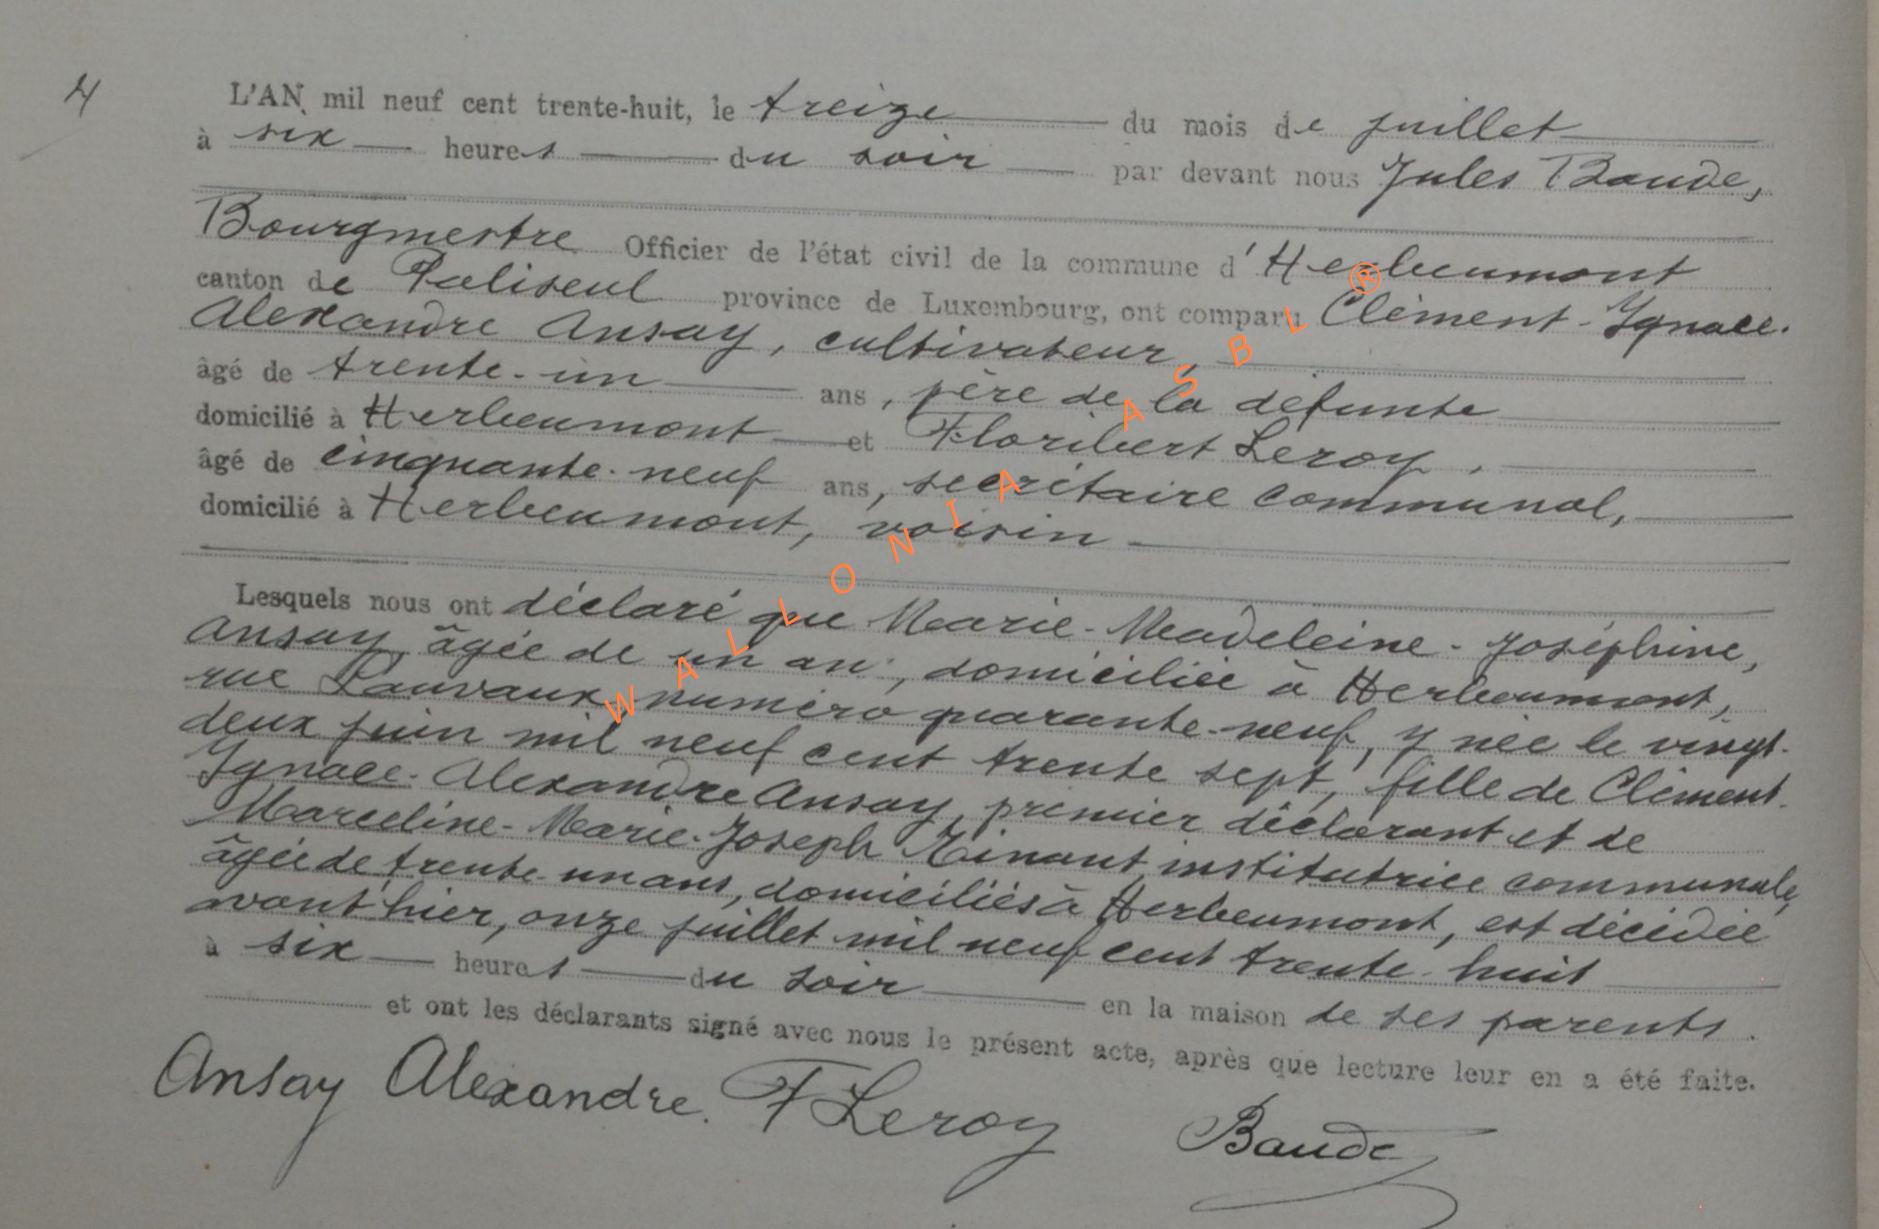 4
L'AN mil neuf cent trente-huit, le treize du mois de juillet
à six heures du soir par devant nous Jules Baude,
Bourgmestre Officier de l'état civil de la commune d'Herbeumont
canton de Paliseul province de Luxembourg, ont comparu Clément-Ignace-
Alexandre Ansay, cultivateur,
âgé de trente-un ans, père de la défunte
domicilié à Herbeumont et Floribert Leroy,
âgé de cinquante-neuf ans, secrétaire communal,
domicilié à Herbeumont, voisin
Lesquels nous ont déclaré que Marie-Madeleine-Joséphine,
Ansay, âgée de un an, domiciliée à Herbeumont,
rue Lauvaux, numéro quarante-neuf, y née le vingt-
deux juin mil neuf cent trente sept, fille de Clément-
Ignace-Alexandre Ansay, premier déclarant et de
Marceline-Marie-Joseph Zinant, institutrice communale,
âgée de trente-un ans, domiciliés à Herbeumont, est décédée
avant hier, onze juillet mil neuf cent trente-huit
à six heures du soir en la maison de ses parents.
et ont les déclarants signé avec nous le présent acte, après que lecture leur en a été faite.
Ansay Alexandre. F Leroy Baude
WALLONIA ASBL ®